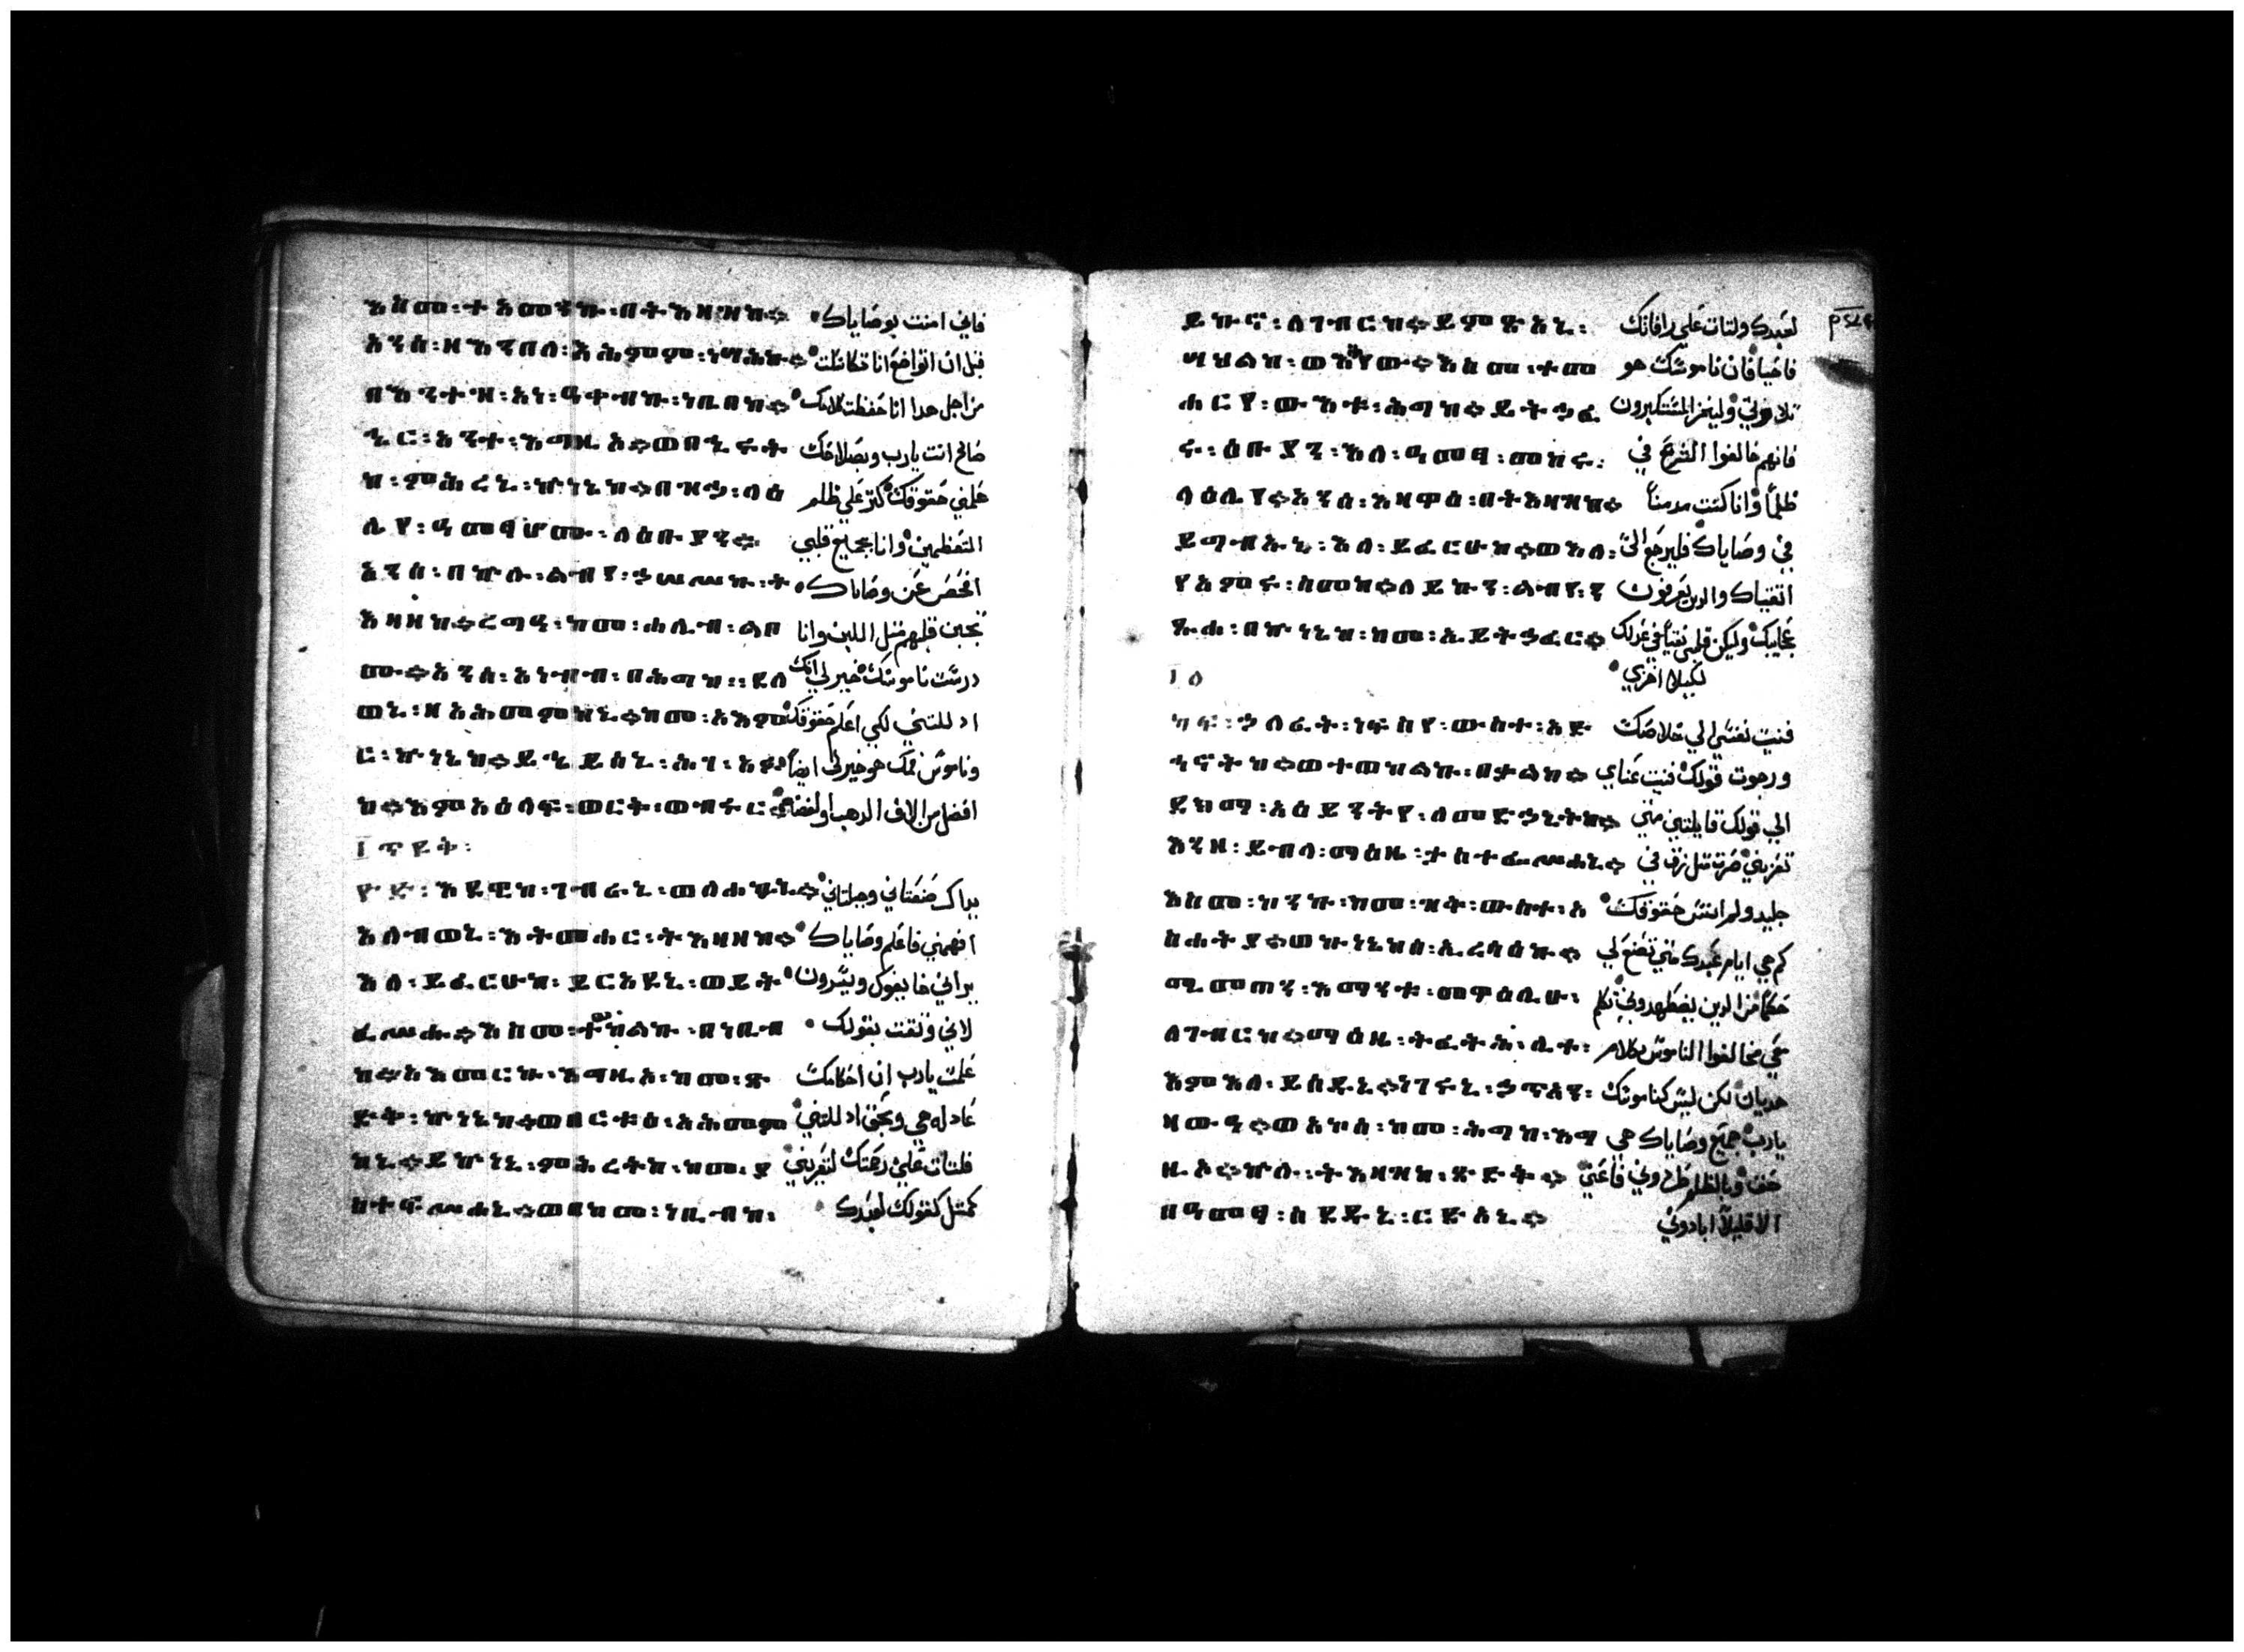 እስመ፡ተአመንኩ፡በትእዛዝከ። فاني امنت بوصاياك
አንሰ፡ዘእንበለ፡አሕምም፡ነሣሕኩ። قبل ان اتواضع انا تكاسلت
በእንተዝ፡አነ፡ዓቀብኩ፡ነቢበከ። من اجل هدا انا حفظت كلامك
ኄር፡አንተ፡እግዚኦ።ወበኂሩት صالح انت يارب وبصلاحك
ከ፡ምሕረኒ፡ኵነኔከ።በዝኃ፡ላዕ علمني حقوقك كتر علي ظلم
ሌየ፡ዓመፃሆሙ፡ለዕቡያን። المتعظمين وانا بجميع قلبي
አንሰ፡በኵሉ፡ልብየ፡ኃሠሥኩ፡ት افحص عن وصاياك
እዛዝከ።ረግዓ፡ከመ፡ሐሊብ፡ልበ تجبن قلبهم متل اللبن وانا
ሙ።አንሰ፡አነብብ፡በሕግከ፡፡ደለ درست ناموسك خير لي انك
ወኒ፡ዘአሕመምከኒ።ከመ፡አእም اد للتني لكي اعلم حقوقك
ር፡ኵነኔከ።ይኄይሰኒ፡ሕገ፡አፉ وناموس فمك هو خير لي ايضاً
ከ።እምአእላፍ፡ወርቅ፡ወብሩር افضل من الاف الدهب والفضه
፲
እደዊከ፡ገብራኒ፡ወለሐኳኒ። يداك صنعتاني وجبلتاني
አለብወኒ፡እትመሐር፡ትእዛዝከ። افهمني فاعلم وصاياك
እለ፡ይፈርሁከ፡ይርአዩኒ፡ወይት يراني خايفوك ويسرون
ፈሥሑ።እስመ፡ተወከልኩ፡በነቢብ لاني وثقت بقولك
ከ።አእመርኩ፡እግዚኦ፡ከመ፡ጽ علمت يارب ان احكامك
ድቅ፡ኵነኔከ።ወበርቱዕ፡አሕመም عادله هي وبحق اد للتني
ከኒ።ይኩነኒ፡ምሕረትከ፡ከመ፡ያ فلتات علي رحمتك لتعزيني
ስተፍሥሐኒ።ወበከመ፡ነቢብከ፡ كمتل كقولك لعبدك
ይኩኖ፡ለገብርከ።ይምጽአኒ፡ لعبدك ولتات علي رافاتك
ሣህልከ፡ወአሐየው።እስመ፡ተመ فاحيا فان ناموسك هو
ሐርየ፡ውእቱ፡ሕግከ።ይትኃፈ تلاوتي وليخز المتكبرون
ሩ፡ዕቡያን፡እለ፡ዓመፃ፡መከሩ፡ فانهم خالفوا الشرع في
ላዕሌየ።አንሰ፡አዘዋዕ፡በትእዛዝከ። ظلماً وانا كنت مدمناً
ይግብኡኒ፡እለ፡ይፈርሁከ።ወእለ፡ في وصاياك فليرجع الي
የአምሩ፡ስመከ።ለይኩን፡ልብየ፡ን اتقياك والدين يعرفون
ጹሐ፡በኵነኔከ፡ከመ፡ኢይትኃፈር። عجايبك وليكن قلبي نقياً في عدلك
لكيلا اخزي
ነፍ፡ኃለፈት፡ነፍስየ፡ውስተ፡አድ فنيت نفسي الي خلاصك
ኅኖትከ።ወተወከልኩ፡በቃልከ። ورجوت قولك فنيت عيناي
ደክማ፡አዕይንትየ፡ለመድኃኒትከ። الي قولك قايلتين متي
እንዘ፡ይብላ፡ማዕዜ፡ታስተፌሥሐኒ። تعزيني صرت متل زق في
እስመ፡ኮንኩ፡ከመ፡ዝቅ፡ውስተ፡አ جليد ولم انس حقوقك
ስሐትያ።ወኵነኔከሰ፡ኢረሳዕኩ። كم هي ايام عبدك متي تصنع لي
ሚመጠን፡እማንቱ፡መዋዕሊሁ፡ حكماً من الدين يضطهدوني تكلم
ለገብርከ።ማዕዜ፡ትፈትሕ፡ሊተ፡ معي مخالفوا الناموس بكلام
እምእለ፡ይሰድዱኒ።ነገሩኒ፡ኃጥአን፡ هديان لكن ليس كناموسك
ዘውዓ።ወአኮሰ፡ከመ፡ሕግከ፡እግ يارب جميع وصاياك هي
ዚኦ።ኵሉ፡ትእዛዝከ፡ጽድቅ። حق وبالظلم طردوني فاعني
በዓመፃ፡ሰደዱኒ፡ርድአኒ። الا قليلاً ابادوني